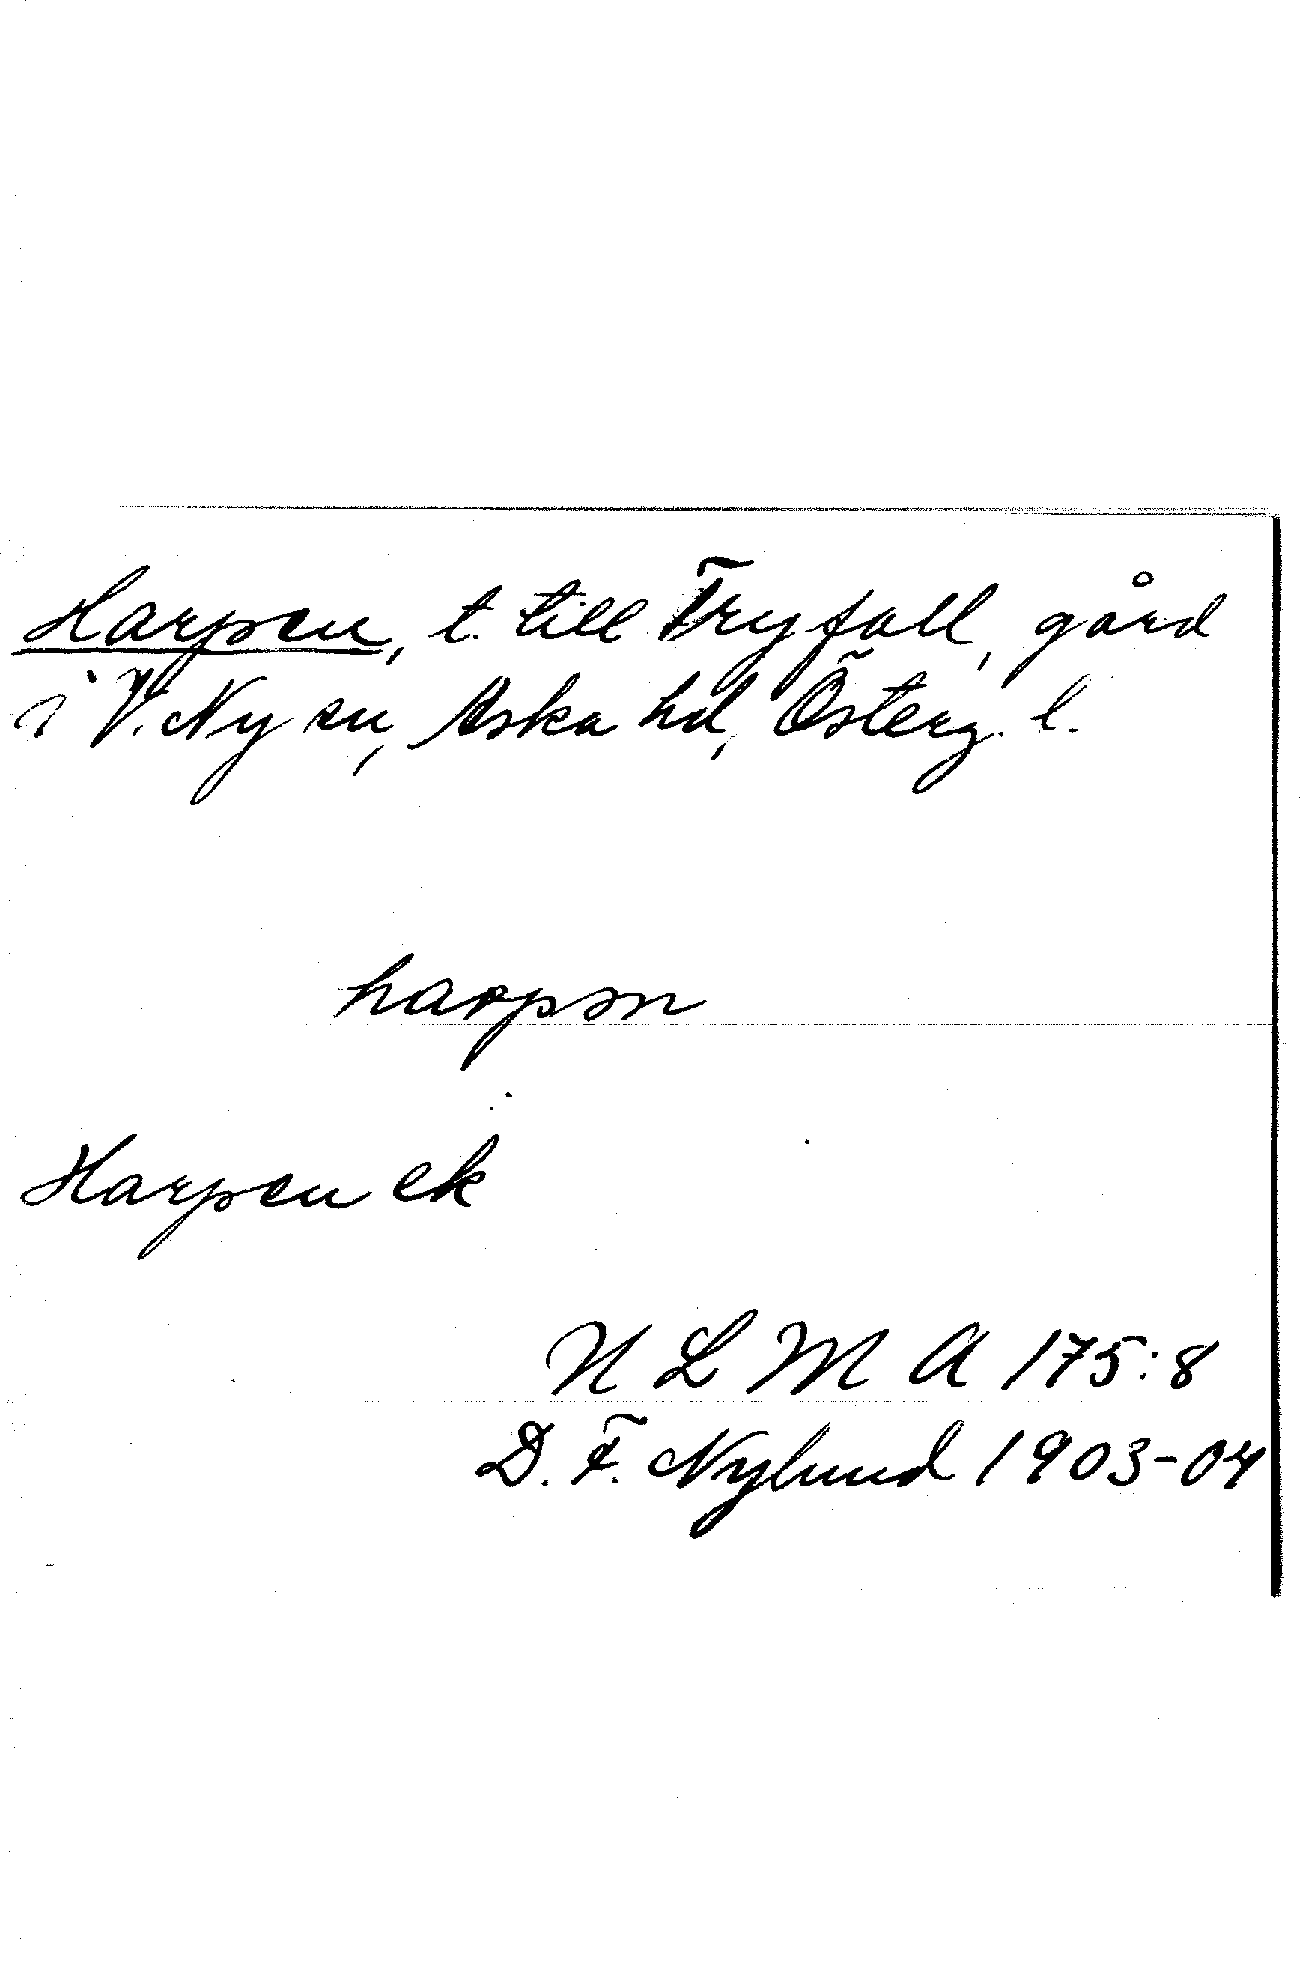 Harpen, t. till Fryfall, gård
i V. Ny sn, Aska hd, Österg. l.
harpən
Harpen ek
N L M A 175:8
D. F. Nylund 1903-04